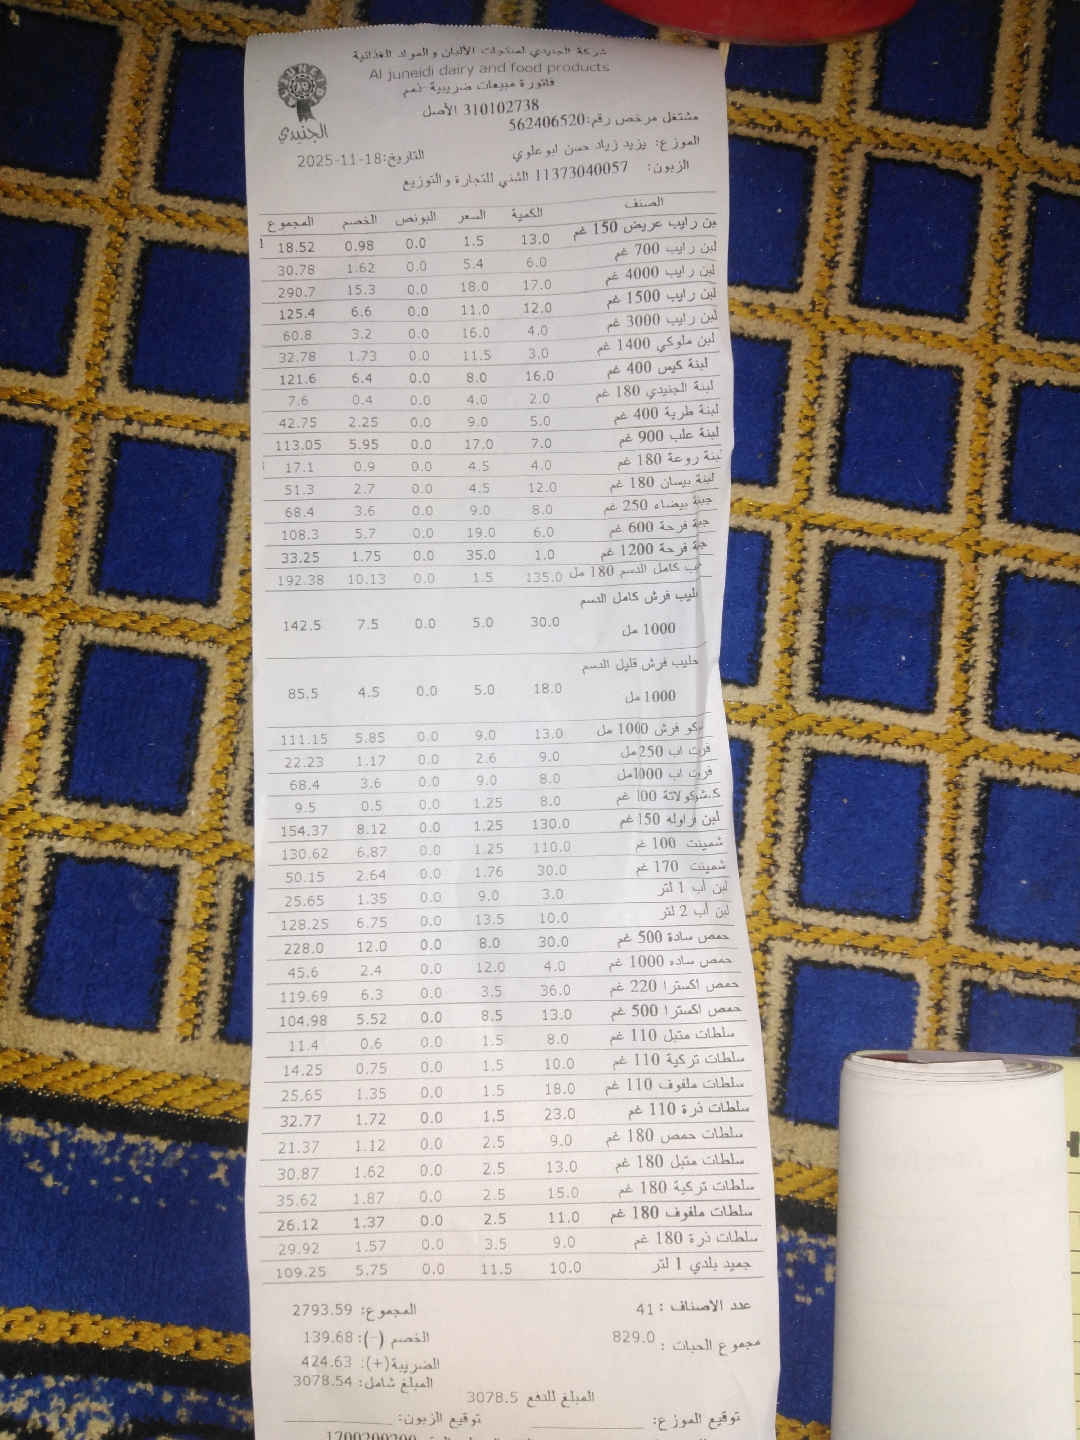 شركة الجنيدي لمنتجات الألبان والمواد الغذائية
Al juneidi dairy and food products
فاتورة مبيعات ضريبية-ذمم
310102738 الأصل
مشتغل مرخص رقم:562406520
الجنيدي
الموزع: يزيد زياد حسن ابوعلوي
التاريخ:18-11-2025
الزبون: 11373040057 الشني للتجارة والتوزيع
الصنف الكمية السعر البونص الخصم المجموع
لبن رايب عريض 150 غم 13.0 1.5 0.0 0.98 18.52
لبن رايب 700 غم 6.0 5.4 0.0 1.62 30.78
لبن رايب 4000 غم 17.0 18.0 0.0 15.3 290.7
لبن رايب 1500 غم 12.0 11.0 0.0 6.6 125.4
لبن رايب 3000 غم 4.0 16.0 0.0 3.2 60.8
لبن ملوكي 1400 غم 3.0 11.5 0.0 1.73 32.78
لبنة كيس 400 غم 16.0 8.0 0.0 6.4 121.6
لبنة الجنيدي 180 غم 2.0 4.0 0.0 0.4 7.6
لبنة طرية 400 غم 5.0 9.0 0.0 2.25 42.75
لبنة علب 900 غم 7.0 17.0 0.0 5.95 113.05
لبنة روعة 180 غم 4.0 4.5 0.0 0.9 17.1
لبنة بيسان 180 غم 12.0 4.5 0.0 2.7 51.3
جبنة بيضاء 250 غم 8.0 9.0 0.0 3.6 68.4
جبة فرحة 600 غم 6.0 19.0 0.0 5.7 108.3
جبة فرحة 1200 غم 1.0 35.0 0.0 1.75 33.25
كامل الدسم 180 مل 135.0 1.5 0.0 10.13 192.38
حليب فرش كامل الدسم
1000 مل 30.0 5.0 0.0 7.5 142.5
حليب فرش قليل الدسم
1000 مل 18.0 5.0 0.0 4.5 85.5
فرش 1000 مل 13.0 9.0 0.0 5.85 111.15
اب 250مل 9.0 2.6 0.0 1.17 22.23
اب 1000مل 8.0 9.0 0.0 3.6 68.4
ك.شوكولاتة 100 غم 8.0 1.25 0.0 0.5 9.5
لبن فراوله 150 غم 130.0 1.25 0.0 8.12 154.37
شمينت 100 غم 110.0 1.25 0.0 6.87 130.62
شمينت 170 غم 30.0 1.76 0.0 2.64 50.15
لبن أب 1 لتر 3.0 9.0 0.0 1.35 25.65
لبن أب 2 لتر 10.0 13.5 0.0 6.75 128.25
حمص سادة 500 غم 30.0 8.0 0.0 12.0 228.0
حمص ساده 1000 غم 4.0 12.0 0.0 2.4 45.6
حمص اكسترا 220 غم 36.0 3.5 0.0 6.3 119.69
حمص اكسترا 500 غم 13.0 8.5 0.0 5.52 104.98
سلطات متبل 110 غم 8.0 1.5 0.0 0.6 11.4
سلطات تركية 110 غم 10.0 1.5 0.0 0.75 14.25
سلطات ملفوف 110 غم 18.0 1.5 0.0 1.35 25.65
سلطات ذرة 110 غم 23.0 1.5 0.0 1.72 32.77
سلطات حمص 180 غم 9.0 2.5 0.0 1.12 21.37
سلطات متبل 180 غم 13.0 2.5 0.0 1.62 30.87
سلطات تركية 180 غم 15.0 2.5 0.0 1.87 35.62
سلطات ملفوف 180 غم 11.0 2.5 0.0 1.37 26.12
سلطات ذرة 180 غم 9.0 3.5 0.0 1.57 29.92
جميد بلدي 1 لتر 10.0 11.5 0.0 5.75 109.25
عدد الاصناف : 41 المجموع: 2793.59
مجموع الحبات : 829.0 الخصم (-): 139.68
الضريبة(+): 424.63
المبلغ شامل: 3078.54
المبلغ للدفع 3078.5
توقيع الموزع: توقيع الزبون:
1700200200